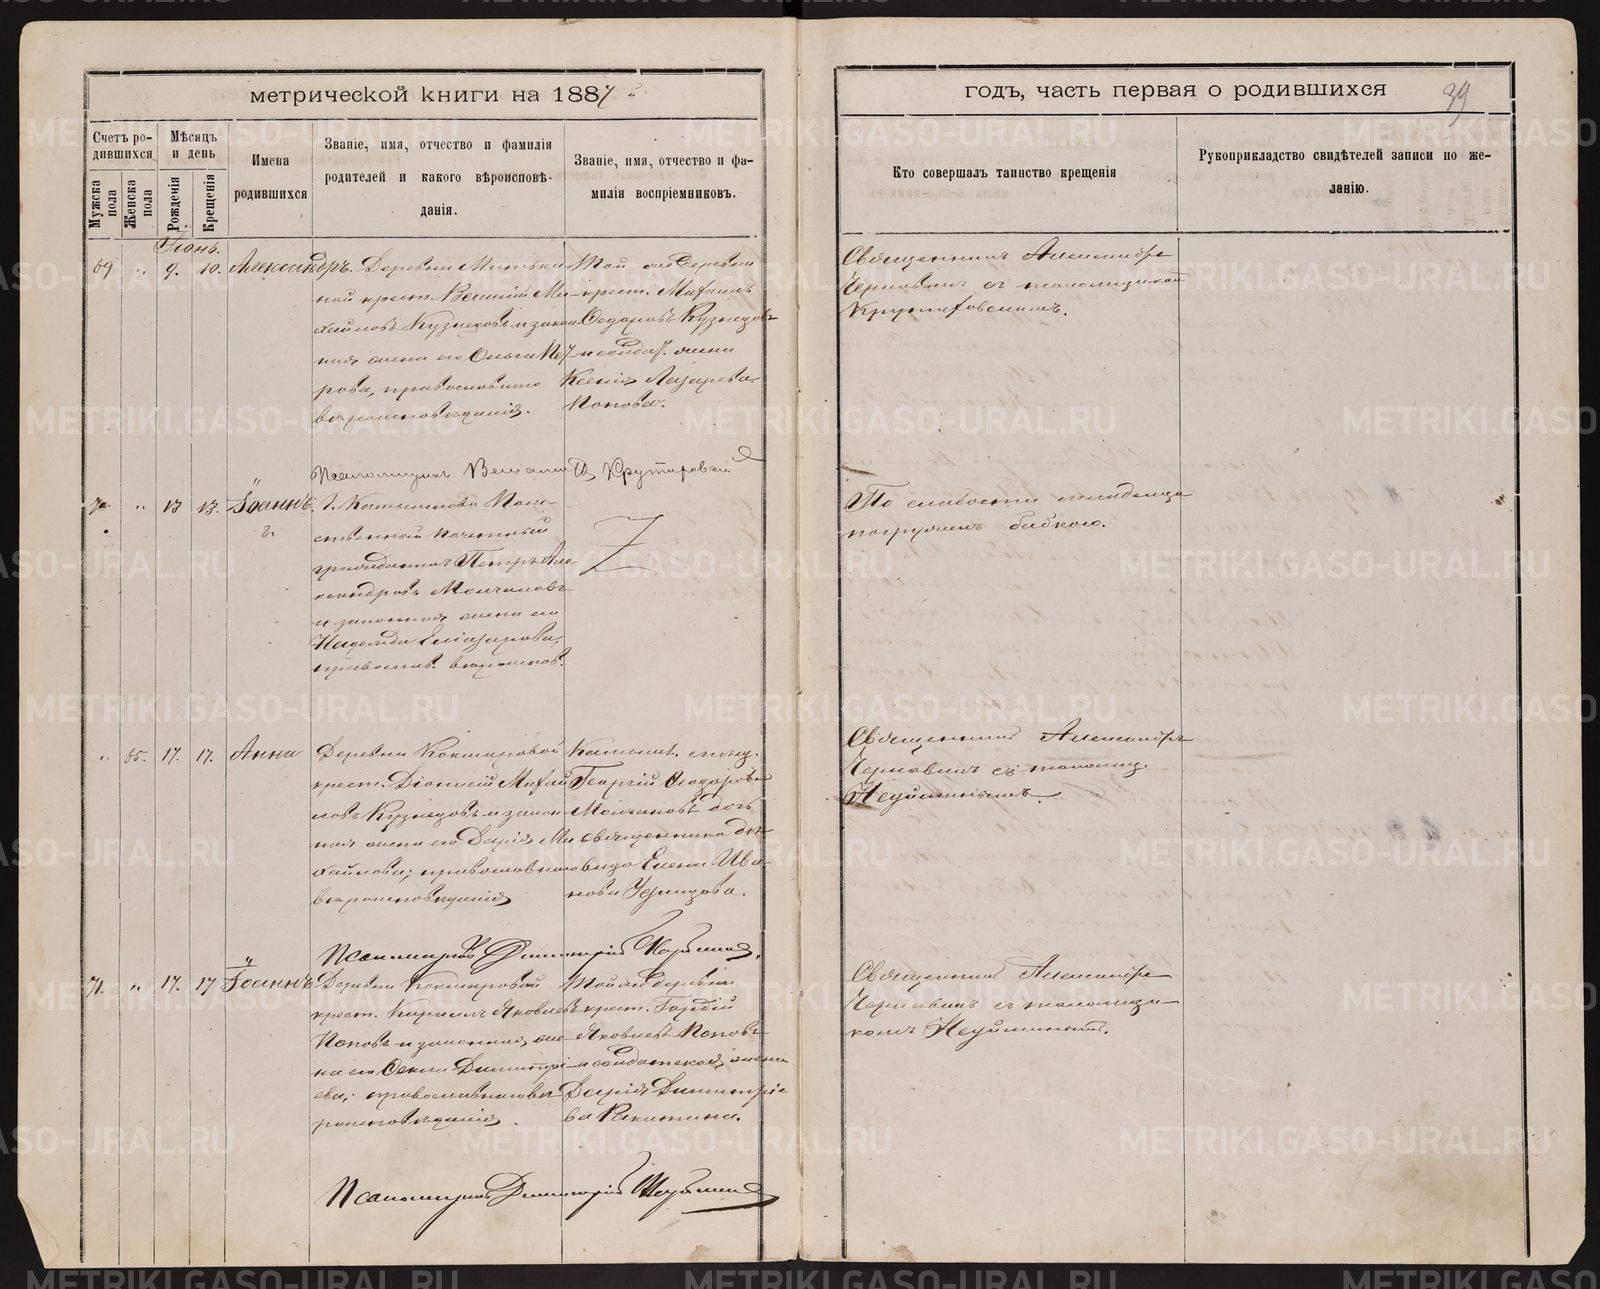 метрической книги на 1887
годъ, часть первая о родившихся
39
Счетъ ро-
дившихся
Мужска
пола
Женска
пола
Мѣсяцъ
и день
Рожденія
Крещенія
Имена
родившихся
Званіе, имя, отчество и фамилія
родителей и какого вѣроисповѣ-
данія.
Званіе, имя, отчество и фа-
милія воспріемниковъ.
Кто совершалъ таинство крещенія
Рукоприкладство свидѣтелей записи по же-
ланію.
Іюнь.
69 " 9. 10. Александръ.
Деревни
крест. Ми-
хайловъ Кузнецовъ и закон-
ная жена его Ольга
рова, православнаго
вѣроисповѣданія.
Той же деревни
крест. Михаилъ
Ѳедоровъ Кузнецовъ
и солдат. жена
Ксенія Лазарева
Попова.
Священникъ Александръ
съ псаломщикомъ
Крутиховскимъ.
Псаломщикъ Крутиховскій
70 " 13 13. Іоаннъ
Потом-
ственный почетный
гражданинъ Петръ Але-
ксандровъ Молчановъ
и законная жена его
Надежда Елеазарова,
православ. вѣроиспов.
По слабости младенца
погружен бабкою.
" 65. 17. 17. Анна
Деревни Кокшаровой
крест. Діонисій Михай-
ловъ Кузнецовъ и закон-
ная жена его Дарія Ми-
хайлова; православнаго
вѣроисповѣданія
Георгій Ѳеодоровъ
Молчановъ дочь
священника дѣ-
вица Елена Ива-
нова Удинцова.
Священникъ Александръ
съ псаломщ.
Псаломщикъ Димитрій
71. " 17. 17 Іоаннъ
Деревни Кокшаровой
крест. Кириллъ Яковлевъ
Поповъ и законная же-
на его Димитрі-
ева; православнаго вѣ-
роисповѣданія.
Той же деревни
крест. Гордій
Яковлевъ Поповъ
и солдатская жена
Дарія Димитріе-
ва
Священникъ Александръ
съ псаломщи-
комъ
Псаломщикъ Димитрій
METRIKI.GASO-URAL.RU